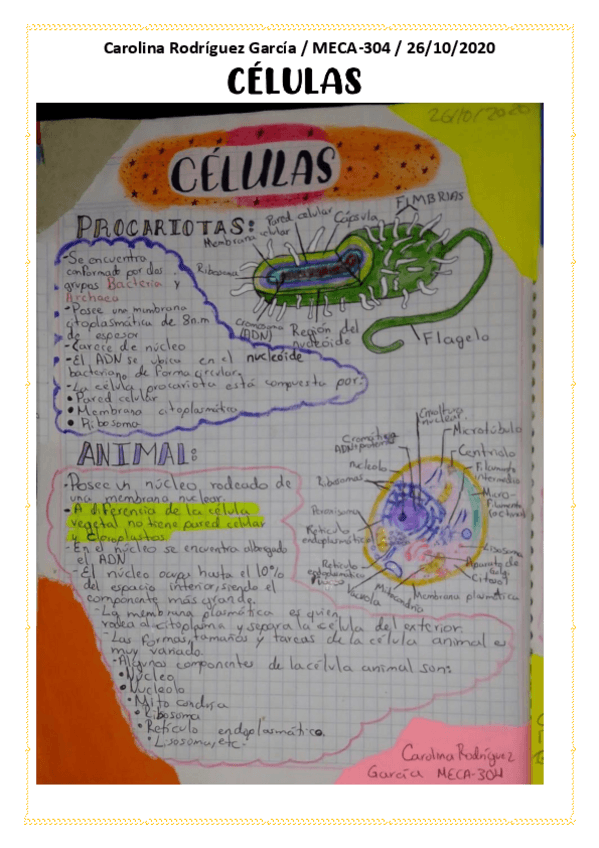 Carolina Rodríguez García / MECA-304 / 26/10/2020
CÉLULAS
26/10/2020
CÉLULAS
PROCARIOTAS:
-Se encuentra
conformado por dos
grupos Bacteria y
Archaea
-Posee una membrana
citoplasmática de 8n.m
de espesor
-Carece de núcleo
-El ADN se ubica en el nucleoide
bacteriano de forma circular
-La célula procariota está compuesta por:
• Pared celular
• Membrana citoplasmática
• Ribosoma
Membrana celular
Pared celular
Cápsula
FIMBRIAS
Ribosoma
Cromosoma (ADN)
Región del nucleóide
Flagelo
ANIMAL:
-Posee un núcleo rodeado de
una membrana nuclear.
-A diferencia de la célula
vegetal no tiene pared celular
y cloroplastos
-En el núcleo se encuentra albergado
el ADN
-El núcleo ocupa hasta el 10%
del espacio interior, siendo el
componente más grande.
-La membrana plasmática es quien
rodea al citoplasma y separa la célula del exterior.
-Las formas, tamaños y tareas de la célula animal es
muy variado.
-Algunos componentes de la célula animal son:
• Núcleo
• Nucleolo
• Mitocondria
• Ribosoma
• Retículo endoplasmático.
• Lisosoma, etc.
Envoltura nuclear
Microtúbulo
Centriolo
Filamento intermedio
Micro-filamento
Lisosoma
Aparato de Golgi
Citosol
Membrana plasmática
Mitocondria
Vacuola
Retículo endoplasmático
Retículo endoplasmático
Peroxisoma
Ribosomas
nucleolo
Cromatina
Carolina Rodríguez
García MECA-304